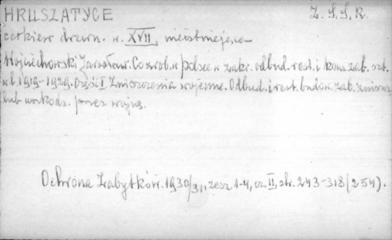 HRUSZATYCE Z.S.S.R.
cerkiew drewn. w. XVII, nieistniejąca
Wojciechowski Jarosław. Co zrob. w Polsce w zakr. odbud. rest. i kons. zab. szt.
w l. 1919-1929. Część I Zniszczenia wojenne. Odbud. i rest. budow. zab. zniszcz.
lub uszkodz. przez wojnę.
Ochrona Zabytków. 1930/31, zesz. 1-4, cz. II, str. 243-318 (254).